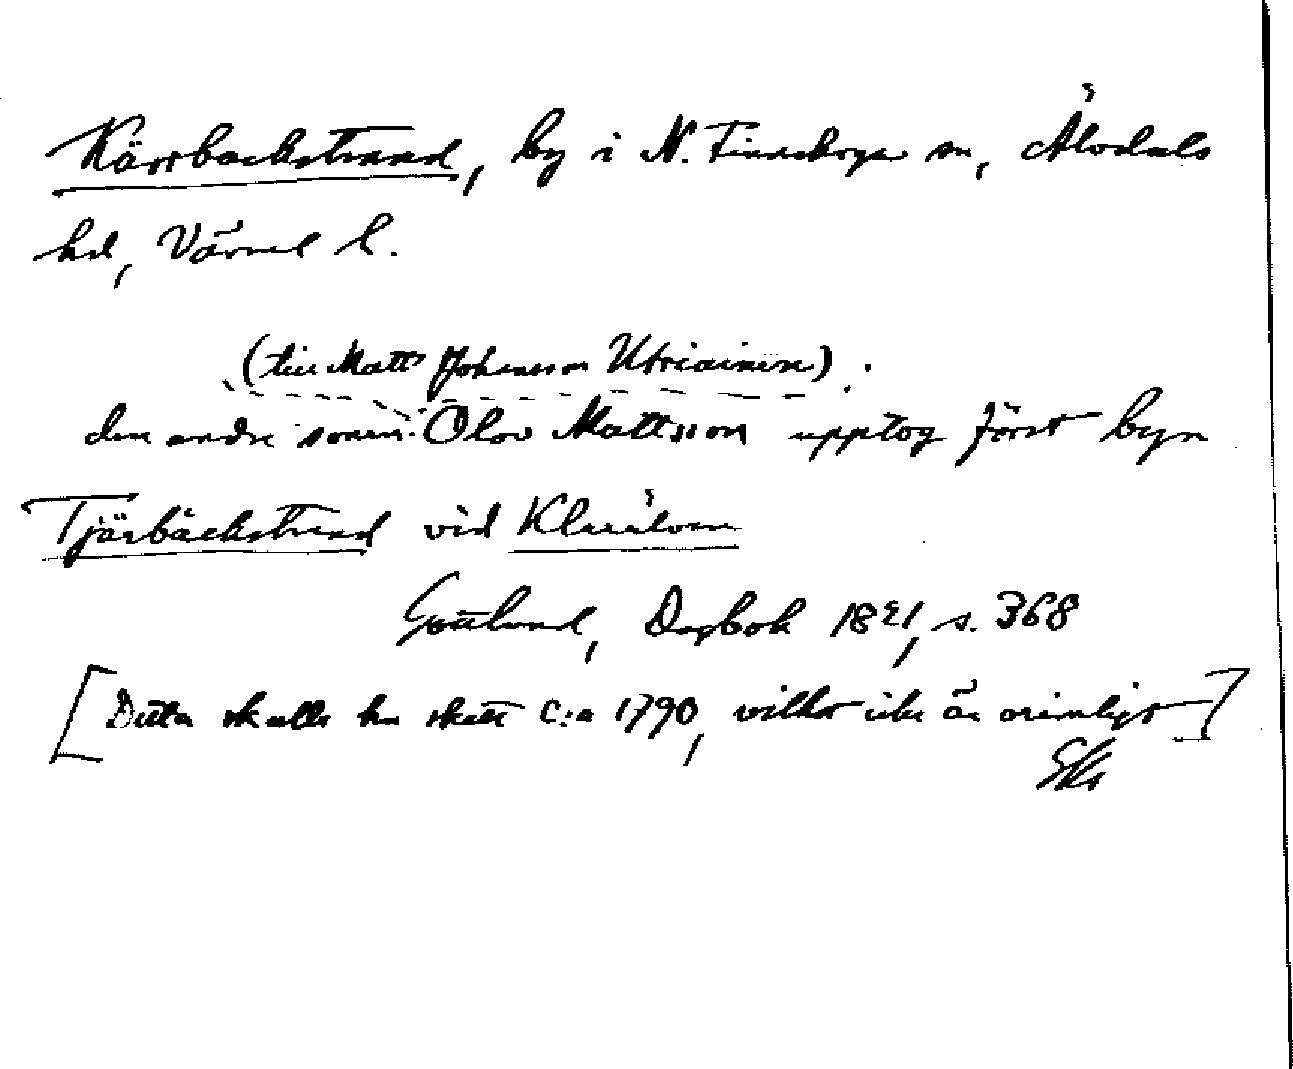 Kärrbackstrand, by i N. Finnskoga sn, Älvdals
hd, Värml l.
(till Matts Johansson Utriainen).
den andre sonen Olov Mattsson upptog först byn
Tjärbäckstrand vid Klarälven
Gottlund, Dagbok 1821, s. 368
[Detta skulle ha skett c:a 1790, vilket icke är orimligt]